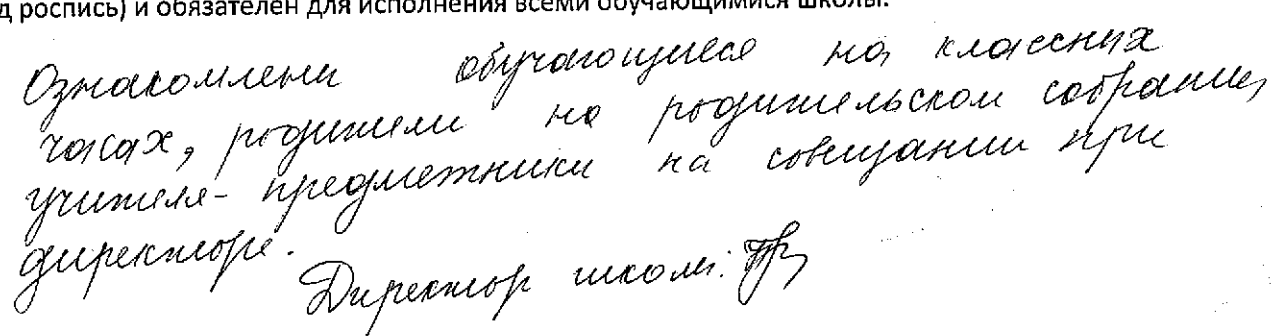 д роспись) и обязателен для исполнения всеми обучающимися школы.
Ознакомлены обучающиеся на классных
часах, родители на родительском собрании,
учителя-предметники на совещании при
директоре.
Директор школы: